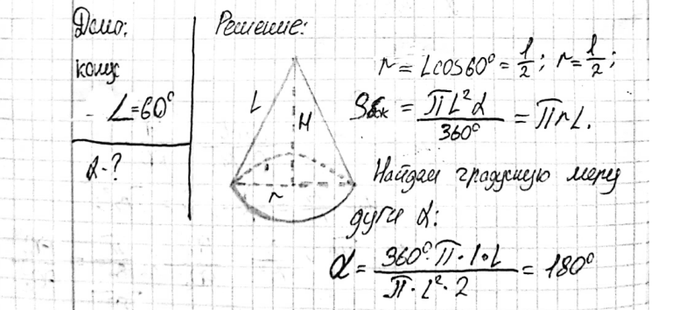 Дано:
конус
∠=60°
α-?
Решение:
L
H
r
r=Lcos60°=l/2; r=l/2;
Sбок=πL²α/360°=πrL.
Найдем градусную меру
дуги α:
α=360°·π·l·L/π·L²·2=180°